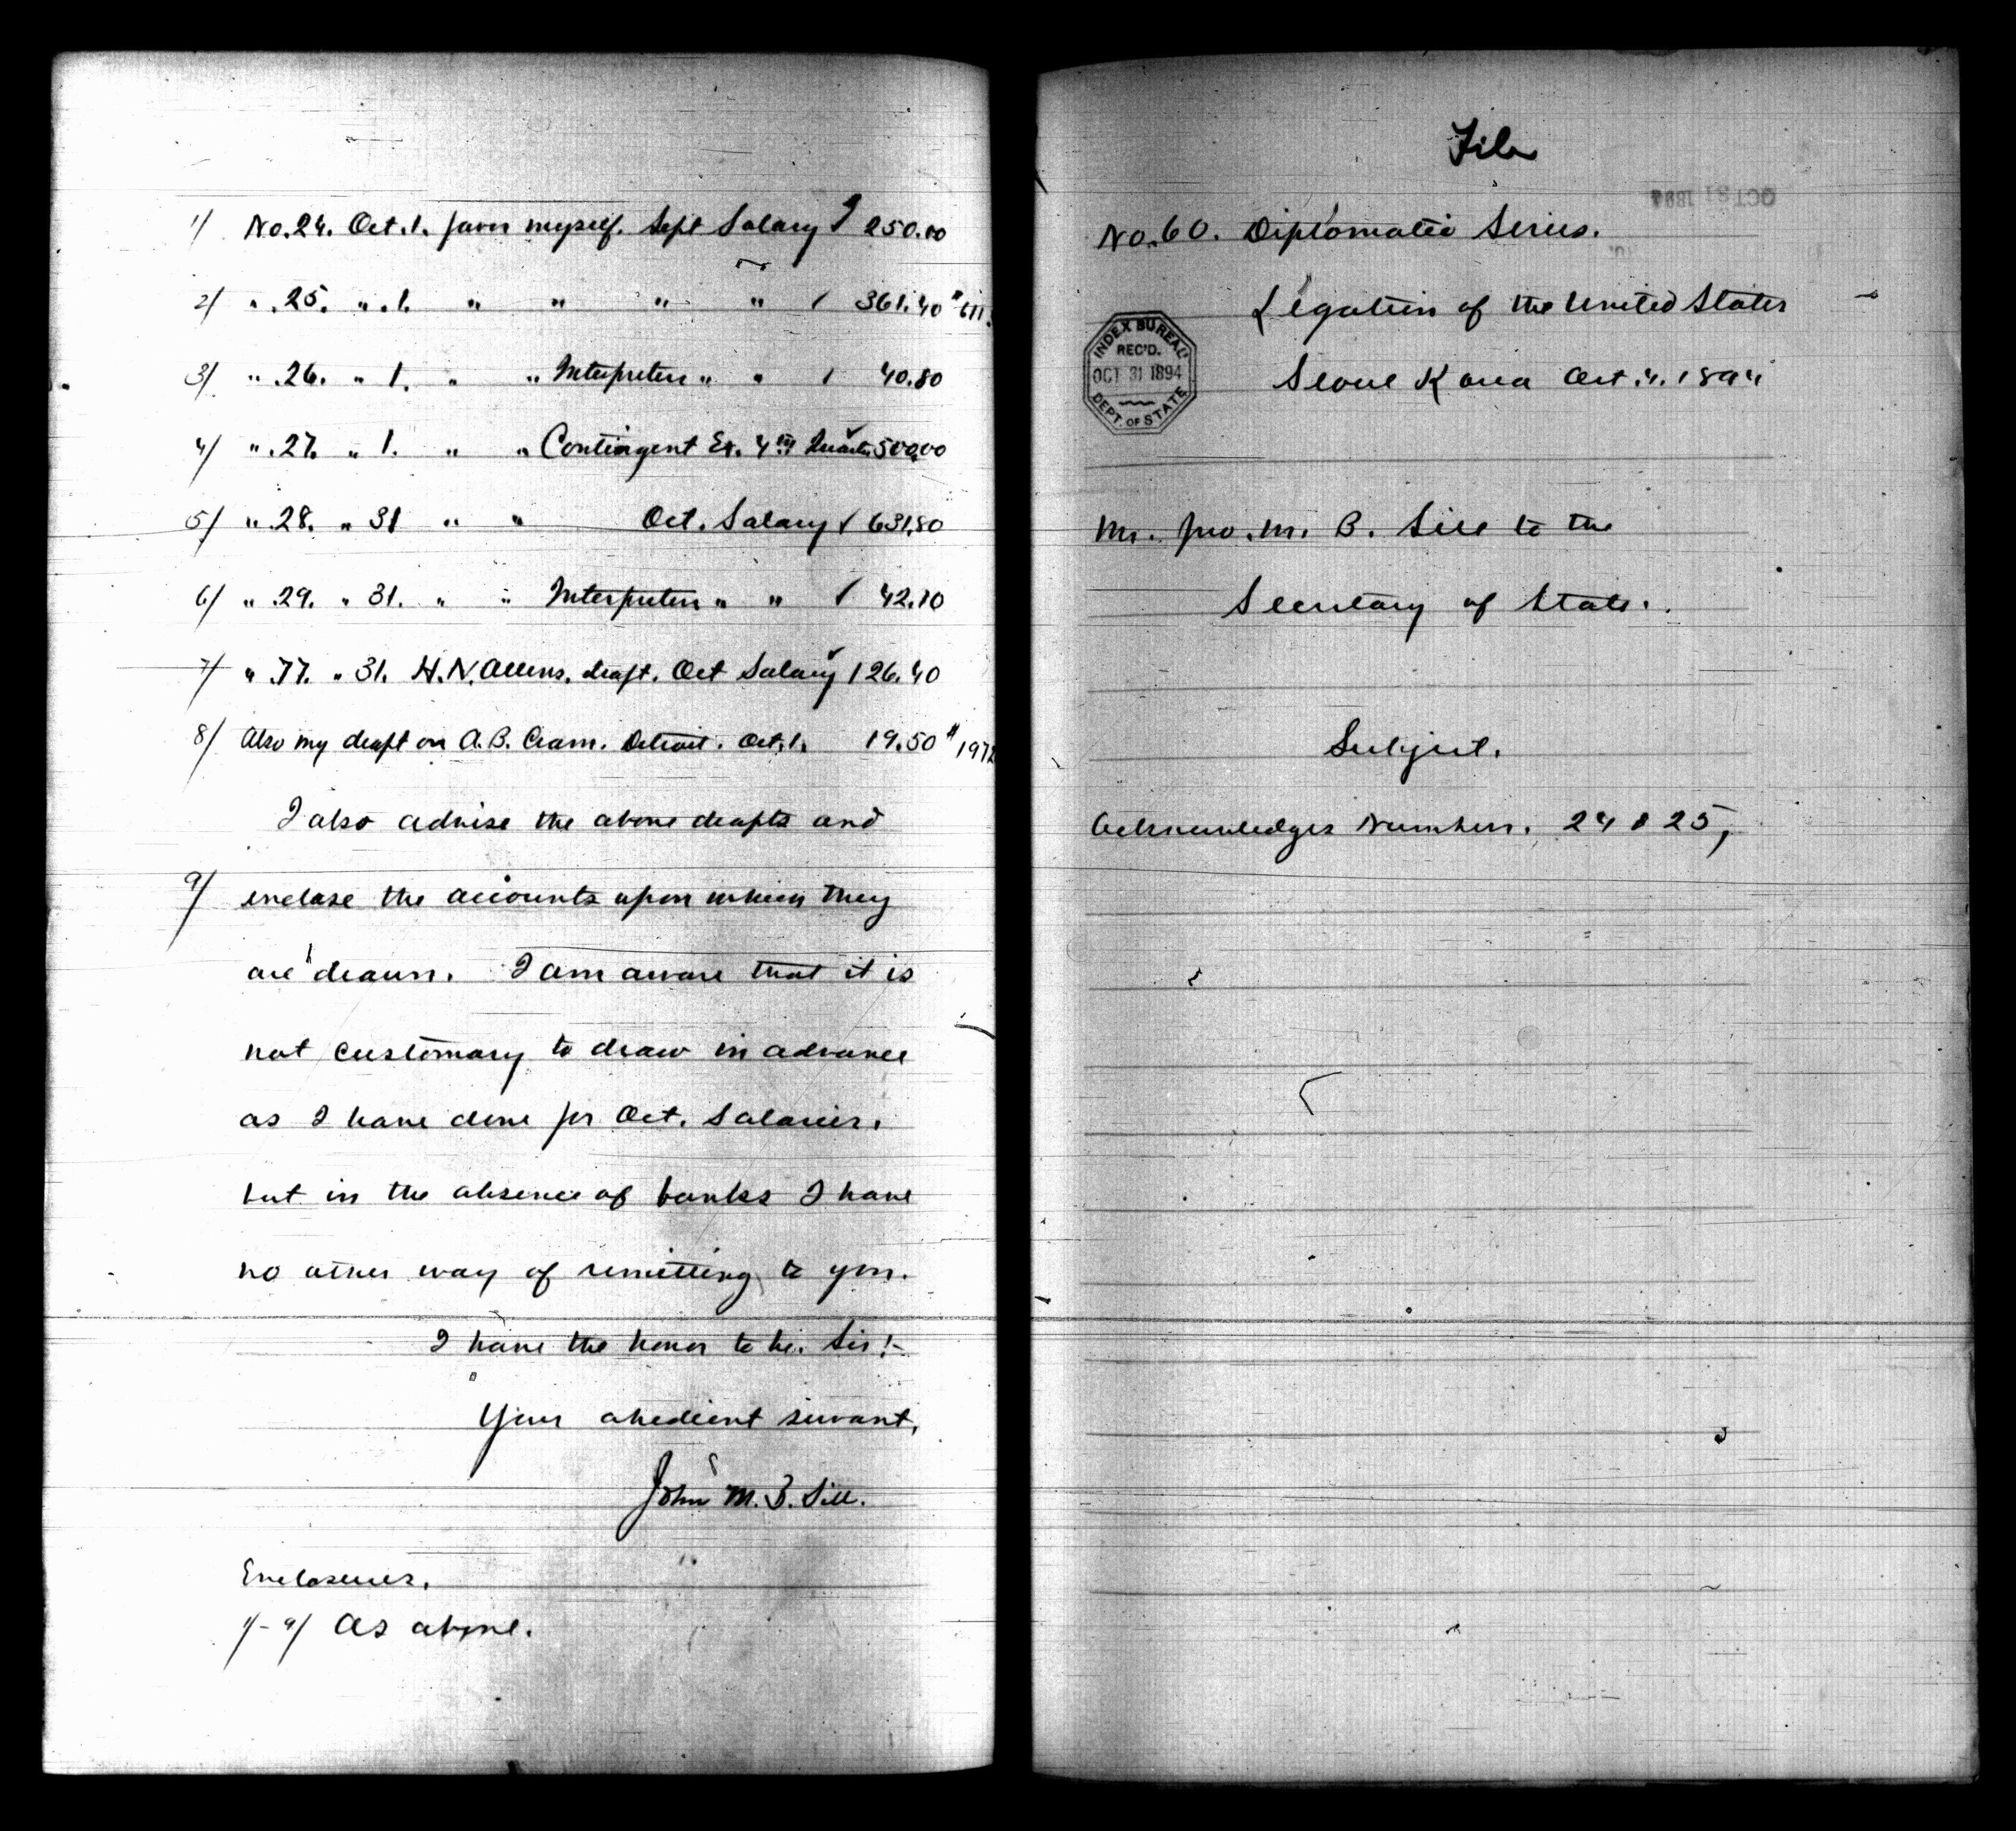 1/ No. 24. Oct. 1. favor myself. Sept Salary 250.00
2/ " .25. " .1. " " " " 361.40 # 611.
3/ " .26. " 1. " " Interpreters " " 40.80
4/ " .27. " 1. " " Contingent Ex. 4th Quarter 500.00
5/ " .28. " 31 " " Oct. Salary 631.80
6/ " .29. " 31. " " Interpreters " " 42.10
7/ " .77. " 31. H. N. Allens. draft. Oct Salary 126.40
8/ Also my draft on A. B. Cram. Detroit. Oct. 1. 19.50 #
I also advise the above drafts and
9/ enclose the accounts upon which they
are drawn. I am aware that it is
not customary to draw in advance
as I have done for Oct. Salaries.
but in the absence of banks I have
no other way of remitting to you.
I have the honor to be. Sir!-
Your obedient servant,
John M. B. Sill.
Enclosures.
1/-9/ As above.
File
OCT 31 1894
No. 60. Diplomatic Series.
Legation of the United States
Seoul Korea Oct. 4. 1894
INDEX BUREAU
REC'D.
OCT 31 1894
DEPT. OF STATE
Mr. Jno. M. B. Sill to the
Secretary of State.
Subject.
Acknowledges Numbers. 24 & 25,